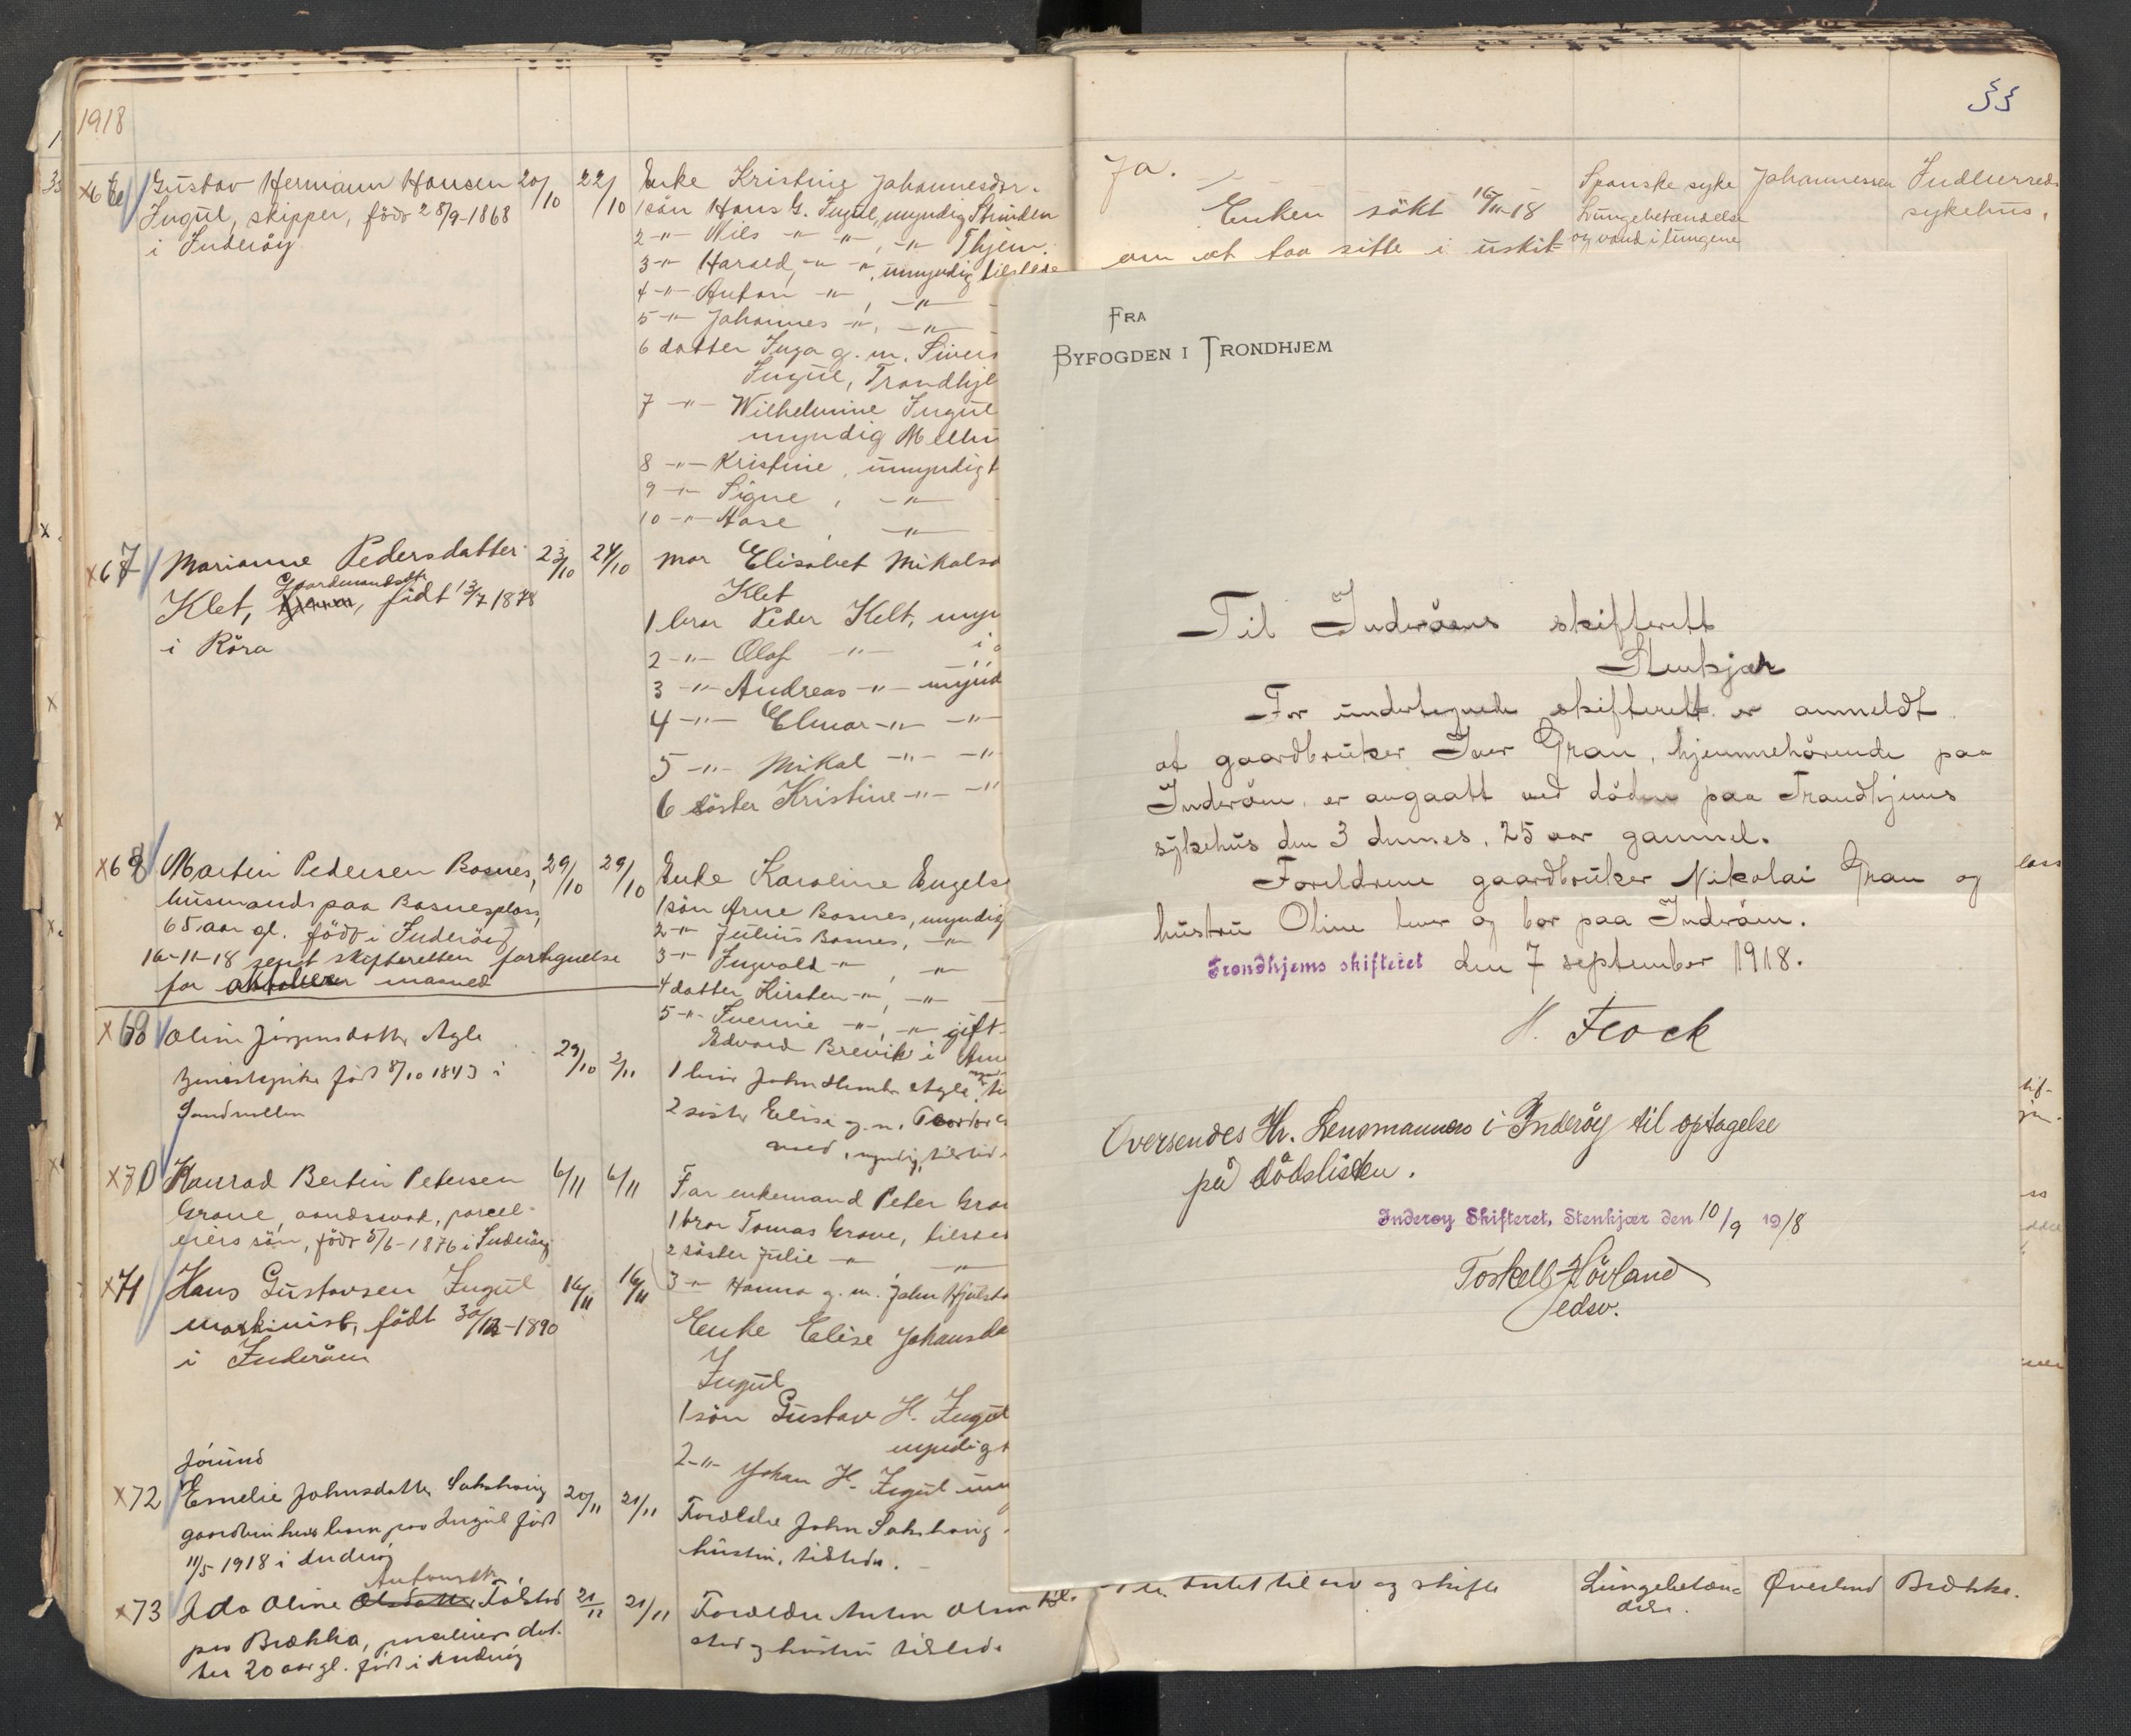 1918
x66 Gustav Hermann Hansen 20/10 22/10
Ingul, skipper, född 28/9-1868
i Inderöy
Enke Kristine Johannesdr.
1 sön Hans G. Ingul, myndig Strinden
2 -"- Nils -"- -"-, -"- Thjem.
3 -"- Harald, -"- -"-, umyndig tilstede
4 -"- Anton -"- , -"-
5 -"- Johannes -"-, -"-
6 datter Inga g. m. Sivers
Ingul, Trondhj
7 -"- Wilhelmine Ingul
myndig
8 -"- Kristine, umyndig t
9 -"- Signe , -"-
10 -"- Aase , -"-
x67 Marianne Pedersdatter 23/10 24/10
Gaardmandsdtr
Klet, födt 13/7 1878
i Röra
mor Elisabet Mikalsd
Klet
1 bror Peder Kelt, myn
2 -"- Olaf -"- i
3 -"- Andreas -"- mynd
4 -"- Elmar -"- -"-
5 -"- Mikal -"- -"-
6 söster Kristine -"- -"-
x68 Martin Pedersen Bosnes, 29/10 29/10
husmand paa Bosnesplass,
65 aar gl. född i Inderöy
16-11-18 sendt skifteretten fortegnelse
for oktober maaned
Enke Karoline Engels
1 sön Arne Bosnes, myndig
2 -"- Julius Bosnes, -"-
3 -"- Ingvald -"- , -"-
4 datter Kirsten -"-, -"-
5 -"- -"-, -"- gift
Edvard Brevik i
x69 Oline Jörgensdatter Agle
29/10 2/11
födt 8/10 1843 i
Sandvollan
1 bror John Agle
2 søster Elise g. m.
myndig, tilsted
x70 Konrad Bertin Petersen 6/11 6/11
Grove, aandssvak, parcel-
eiers sön, född 5/6-1876 i Inderöy
Far enkemand Peter Gro
1 bror Tomas Grove, tilsted
2 söster Julie -"- , -"-
3 -"- Hanna g. m. John Hjulsta
x71 Hans Gustavsen Ingul 16/11 16/11
maskinist, födt 30/12-1890
i Inderöen
Enke Elise Johansda
Ingul
1 sön Gustav H. Ingul
umyndig t
2 -"- Johan H. Ingul umy
Jörund
x72 Emelie Johnsdatter Sakshaug 20/11 21/11
gaardbrukers barn paa Ingul födt
11/5 1918 i Inderöy
Foreldre John Sakshaug
hustru, tilstede.
Antonsdtr.
x73 Ida Oline Olsdatter Folstad 21/11 21/11
paa Brækka, parseleiers dat-
ter 20 aar gl. födt i Inderöy
Foreldre Anton Olsen Fol-
stad og hustru tilstede
33
Ja.
Enken sökt 16/11-18
om at faa sitte i uskit-
Spanske syke
Lungebetændelse
og vand i lungene
Johannessen
Indherreds
sykehus.
FRA
BYFOGDEN I TRONDHJEM
Til Inderöens skifterett
Stenkjær
For undertegnede skifterett er anmeldt
at gaardbruker Iver Gran, hjemmehörende paa
Inderöen, er avgaatt ved döden paa Trondhjems
sykehus den 3 dennes, 25 aar gammel.
Foreldrene gaardbruker Nikolai Gran og
hustru Oline lever og bor paa Inderöen.
Trondhjems skifteret den 7 september 1918.
H. Flock
Oversendes Hr. Lensmannen i Inderöy til optagelse
på dödslisten.
Inderoy Skifteret, Stenkjær den 10/9 1918
Torkell Hövland
edsv.
intet til arv og skifte
Lungebetæn-
delse.
Överland
Brækka.